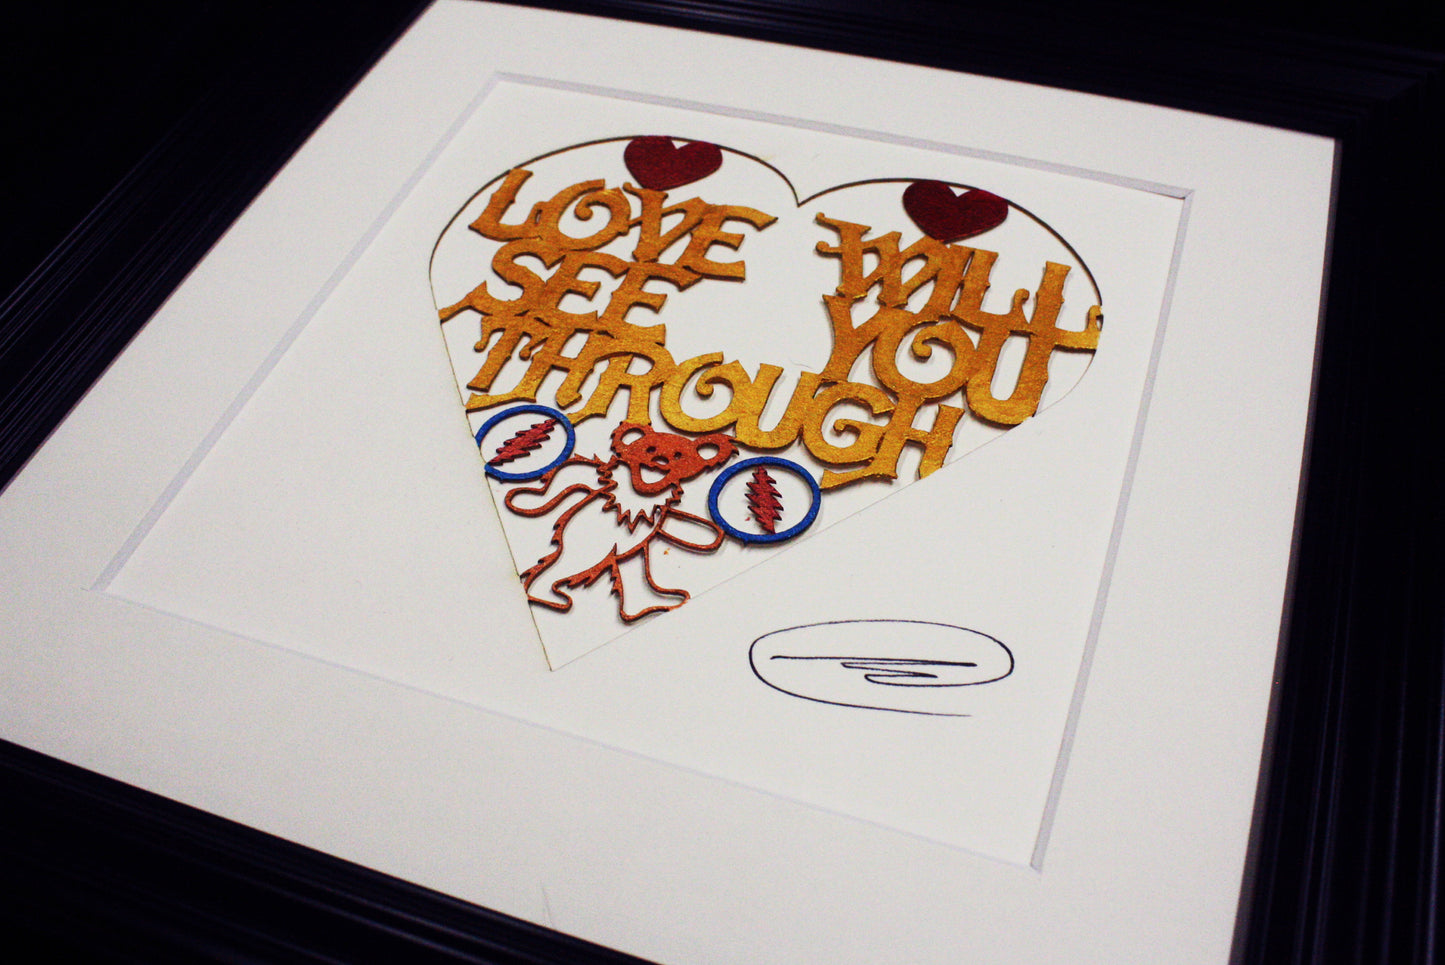 LOVE WILL
SEE YOU
THROUGH